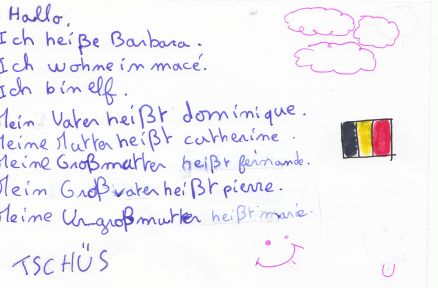 Hallo,
Ich heiße Barbara.
Ich wohne in macé.
Ich bin elf.
Mein Vater heißt dominique.
Meine Mutter heißt catherine.
Meine Großmutter heißt fernande.
Mein Großvater heißt pierre.
Meine Urgroßmutter heißt marie.
TSCHÜS